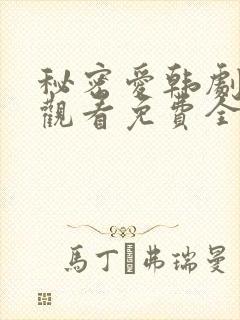 秘密愛韩劇
觀看免費全
馬丁·弗瑞曼